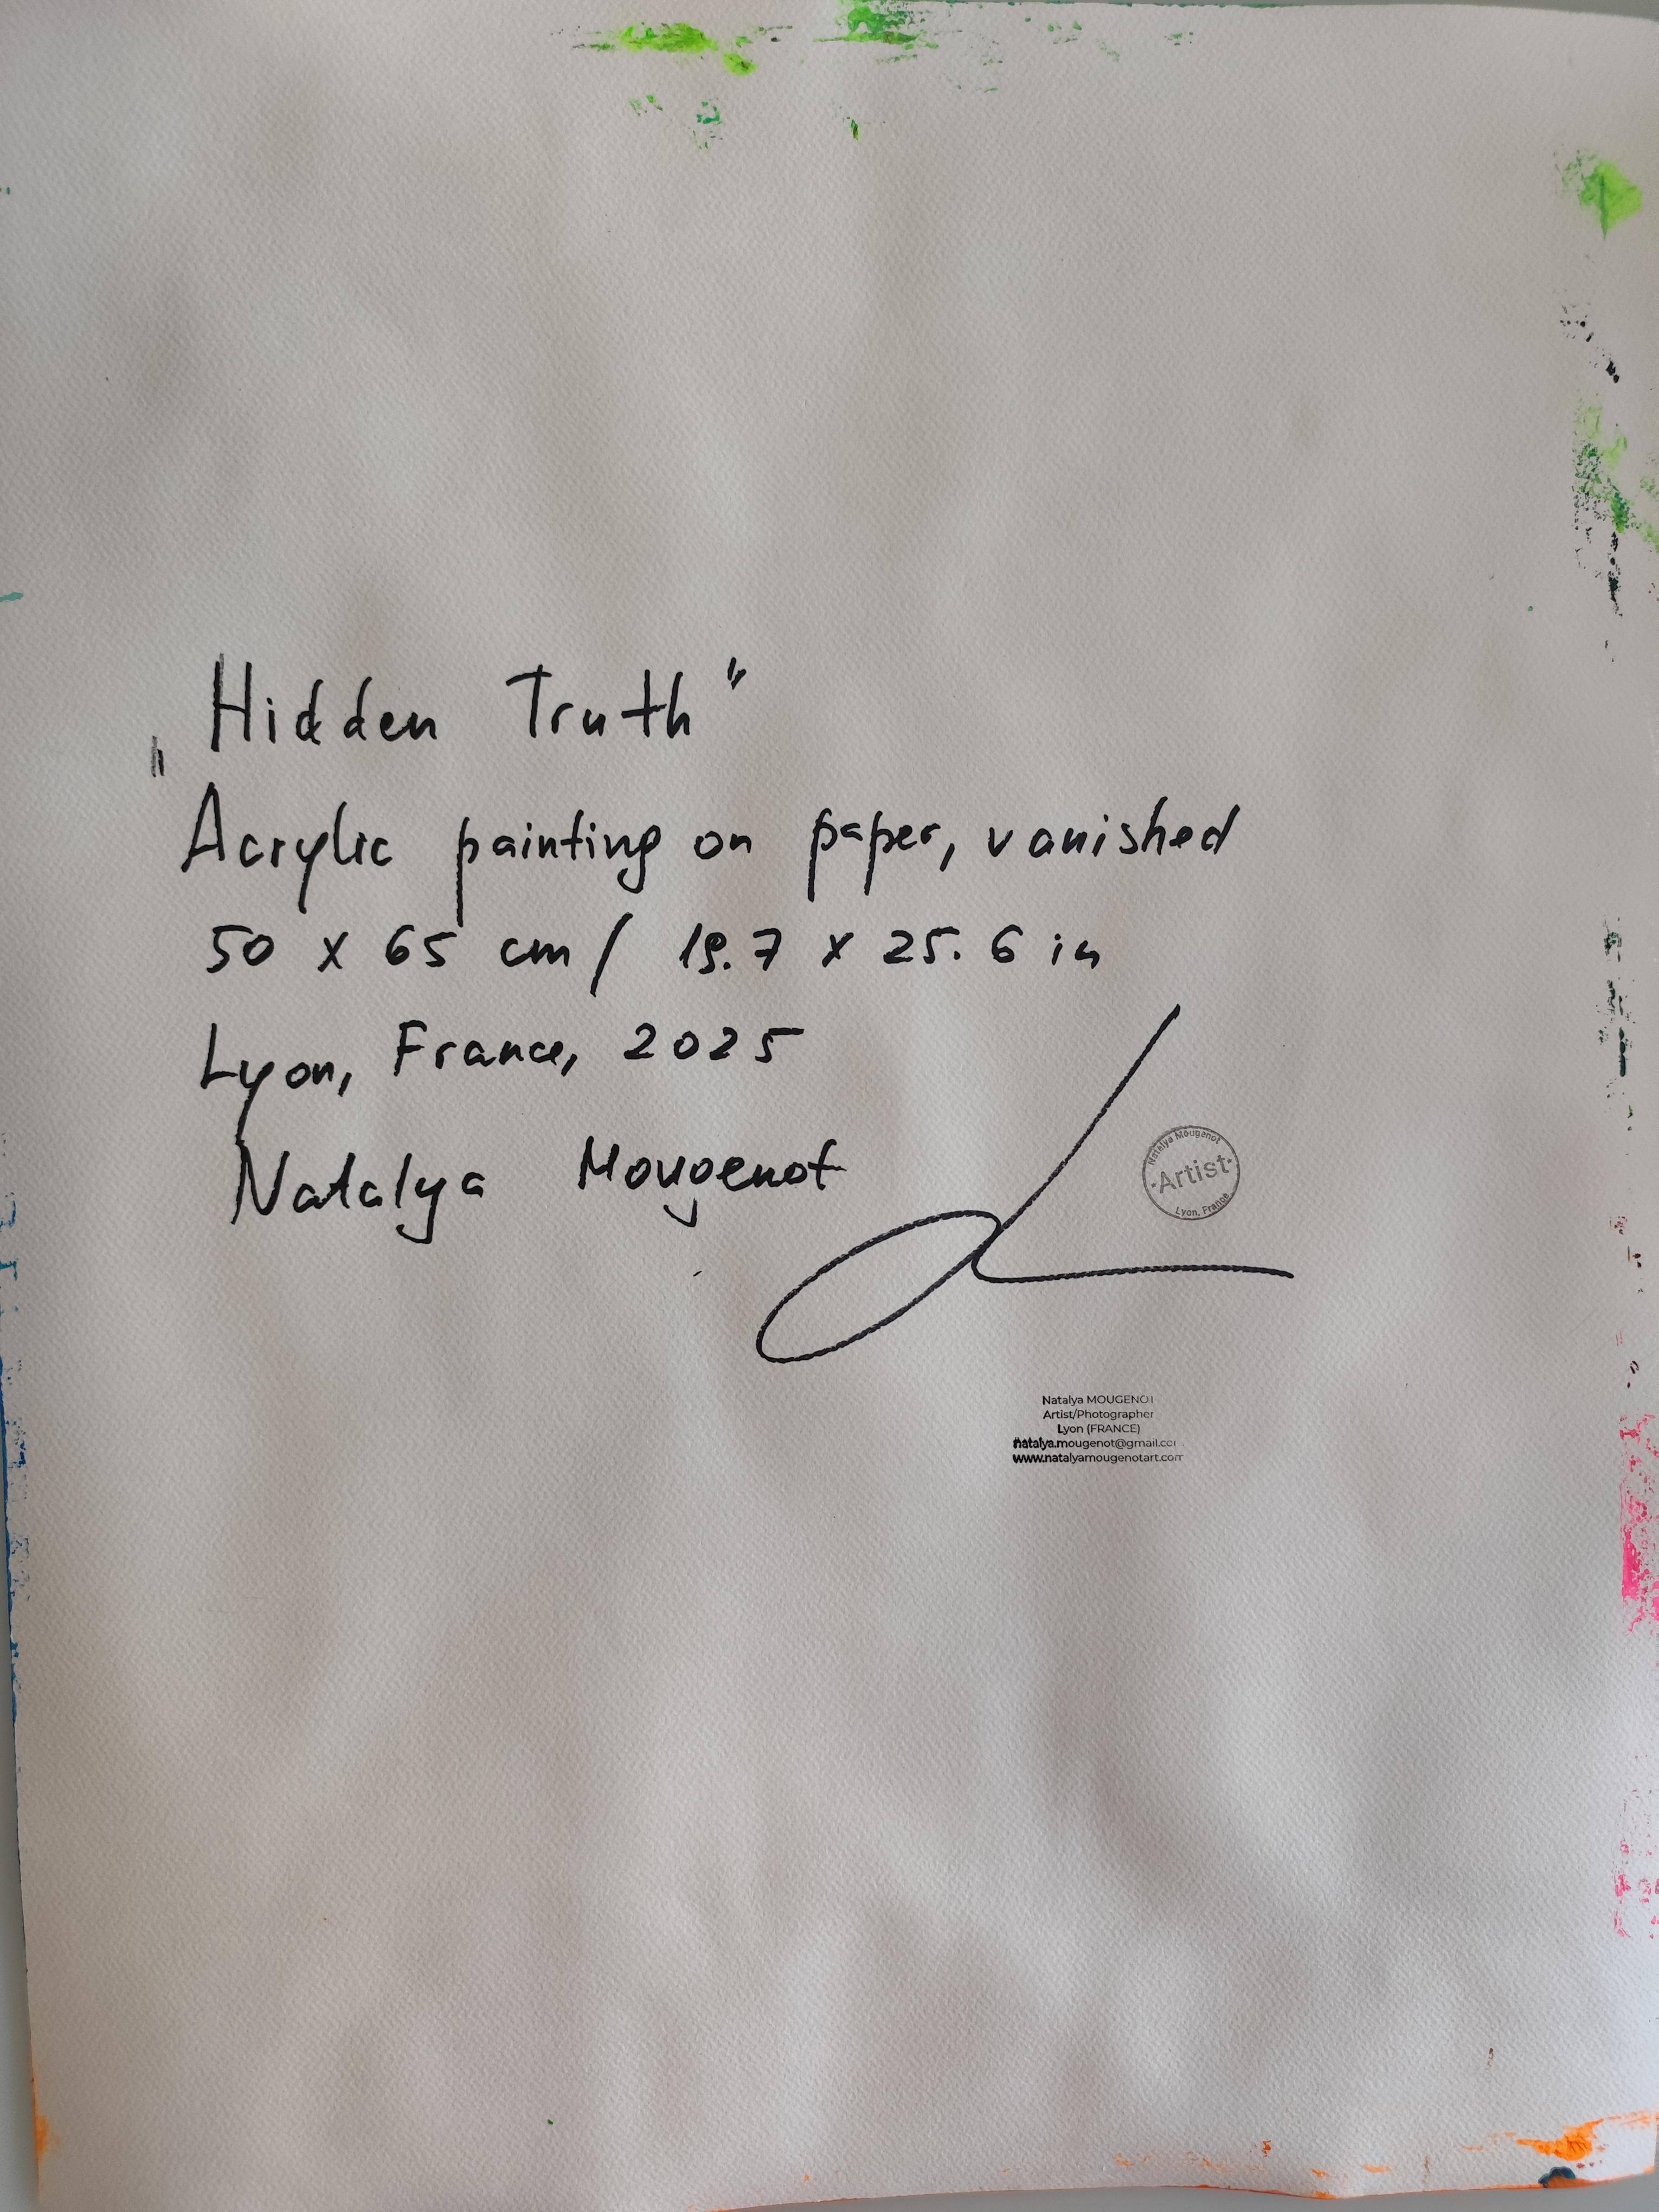 „Hidden Truth"
Acrylic painting on paper, vanished
50 x 65 cm / 19.7 x 25.6 in
Lyon, France, 2025
Natalya Mougenot
Natalya Mougenot
·Artist·
Lyon, France
Natalya MOUGENOT
Artist/Photographer
Lyon (FRANCE)
natalya.mougenot@gmail.com
www.natalyamougenotart.com